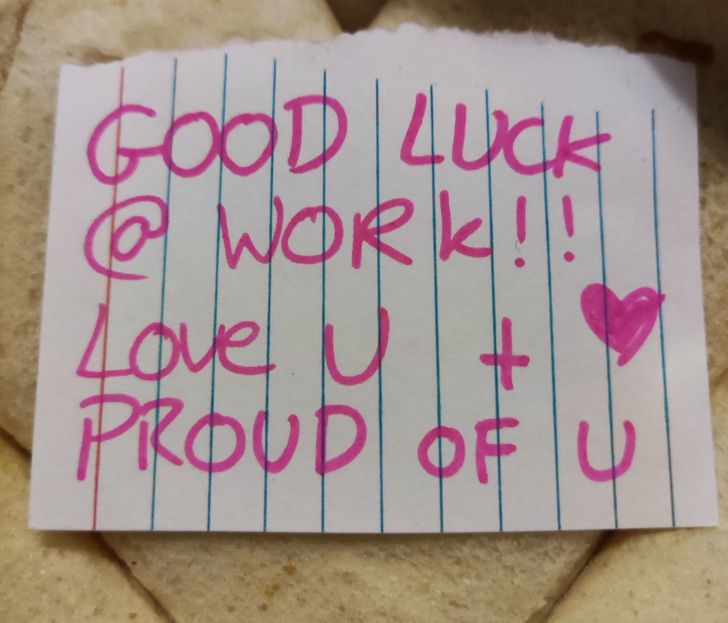 GOOD LUCK
@ WORK!!
Love U + ♥
PROUD OF U